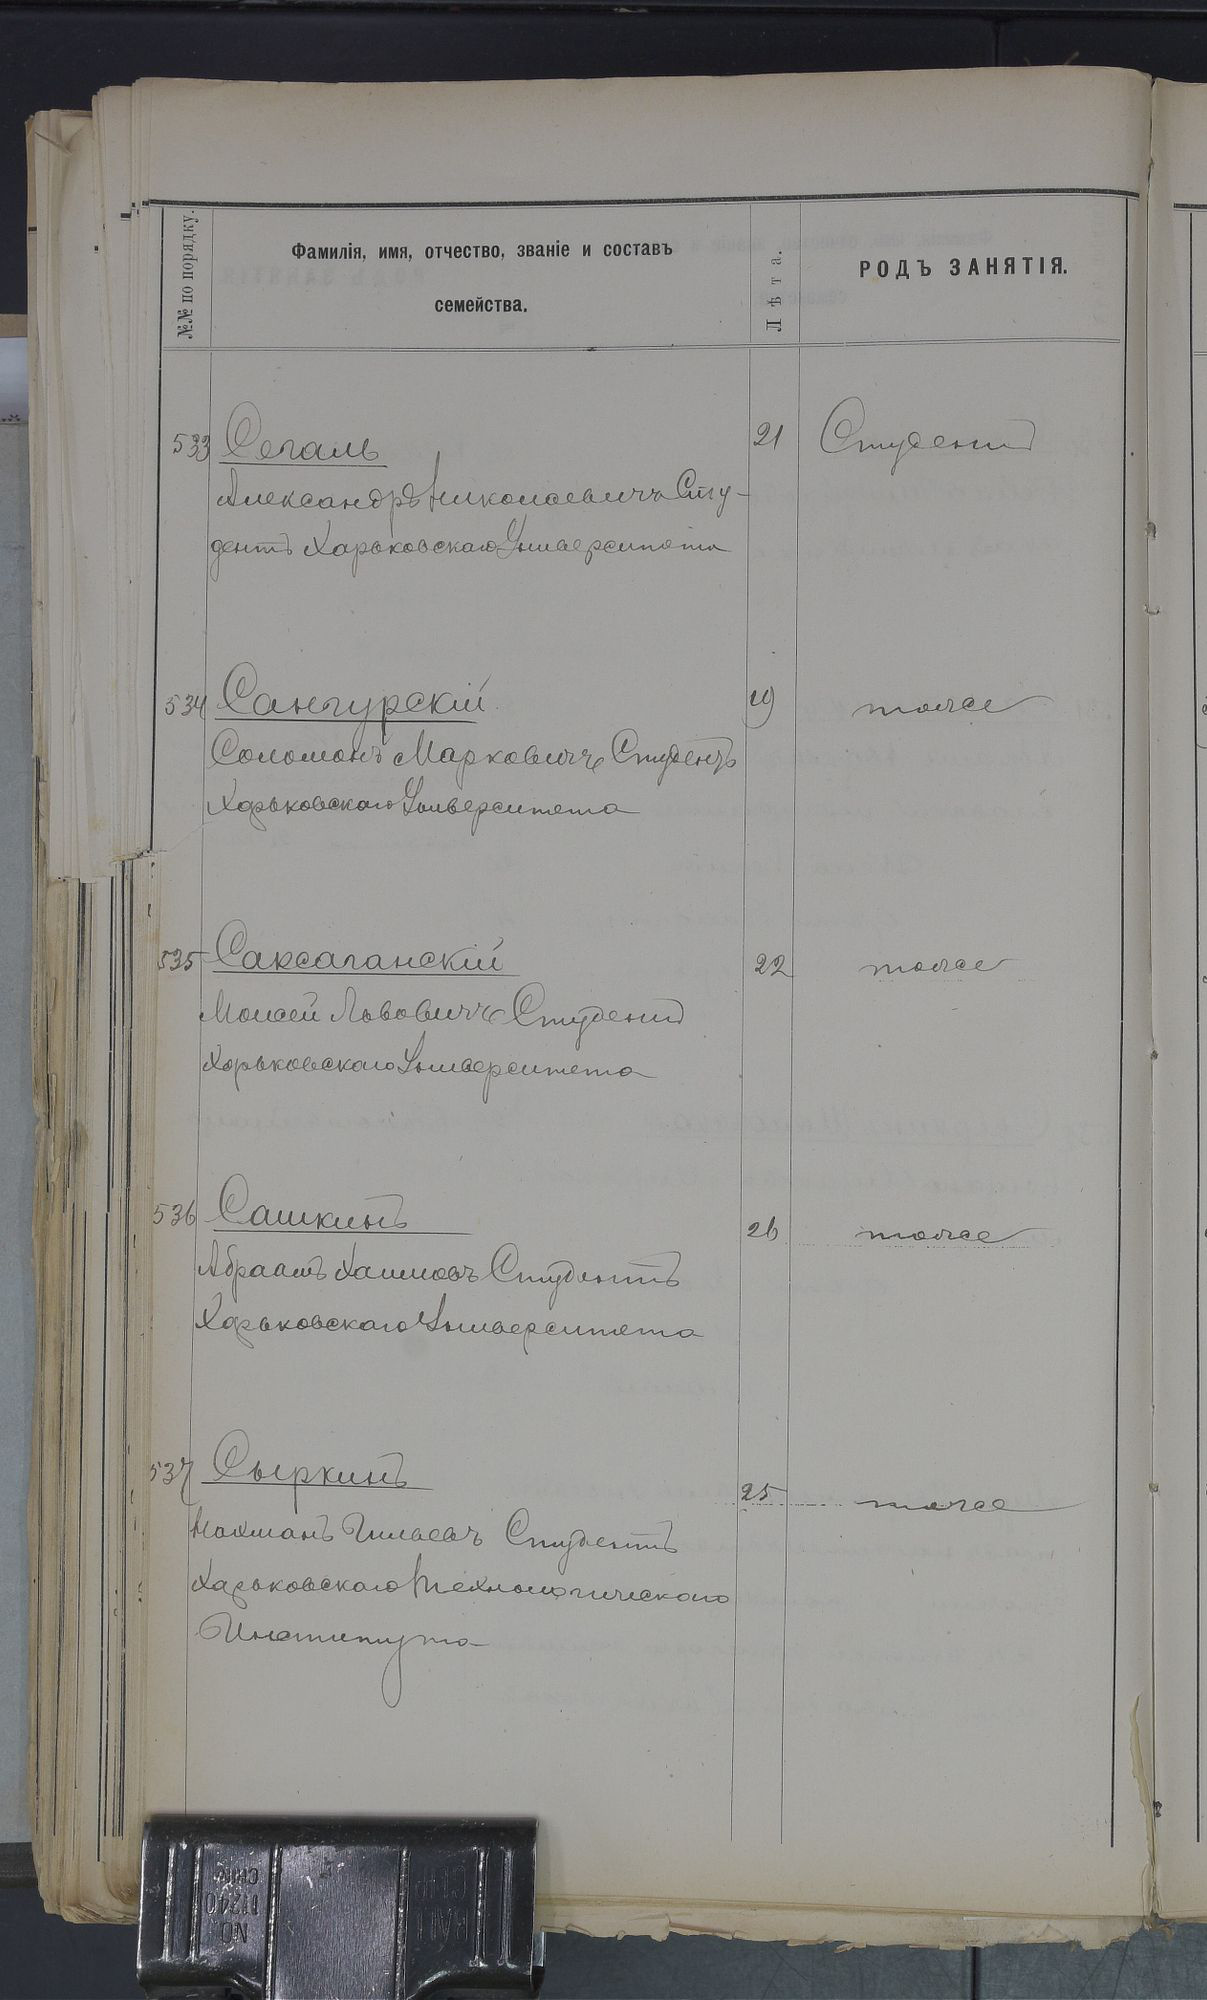 №№ по порядку.
Фамилія, имя, отчество, званіе и составъ
семейства.
Лѣта.
РОДЪ ЗАНЯТІЯ.
533 Сегаль 21 Студентъ
Александръ Николаевичъ Сту-
дентъ Харьковскаго Университета
534 Сангурскій 19 тоже
Соломонъ Марковичъ Студентъ
Харьковскаго Университета
535 Саксаганскій 22 тоже
Моисей Львовичъ Студентъ
Харьковскаго Университета
536 Сашкинъ 26 тоже
Абрамъ Хаимовъ Студентъ
Харьковскаго Университета
537 Сыркинъ 25 тоже
Нахманъ Гилевъ Студентъ
Харьковскаго Технологическаго
Института
NO.
11240